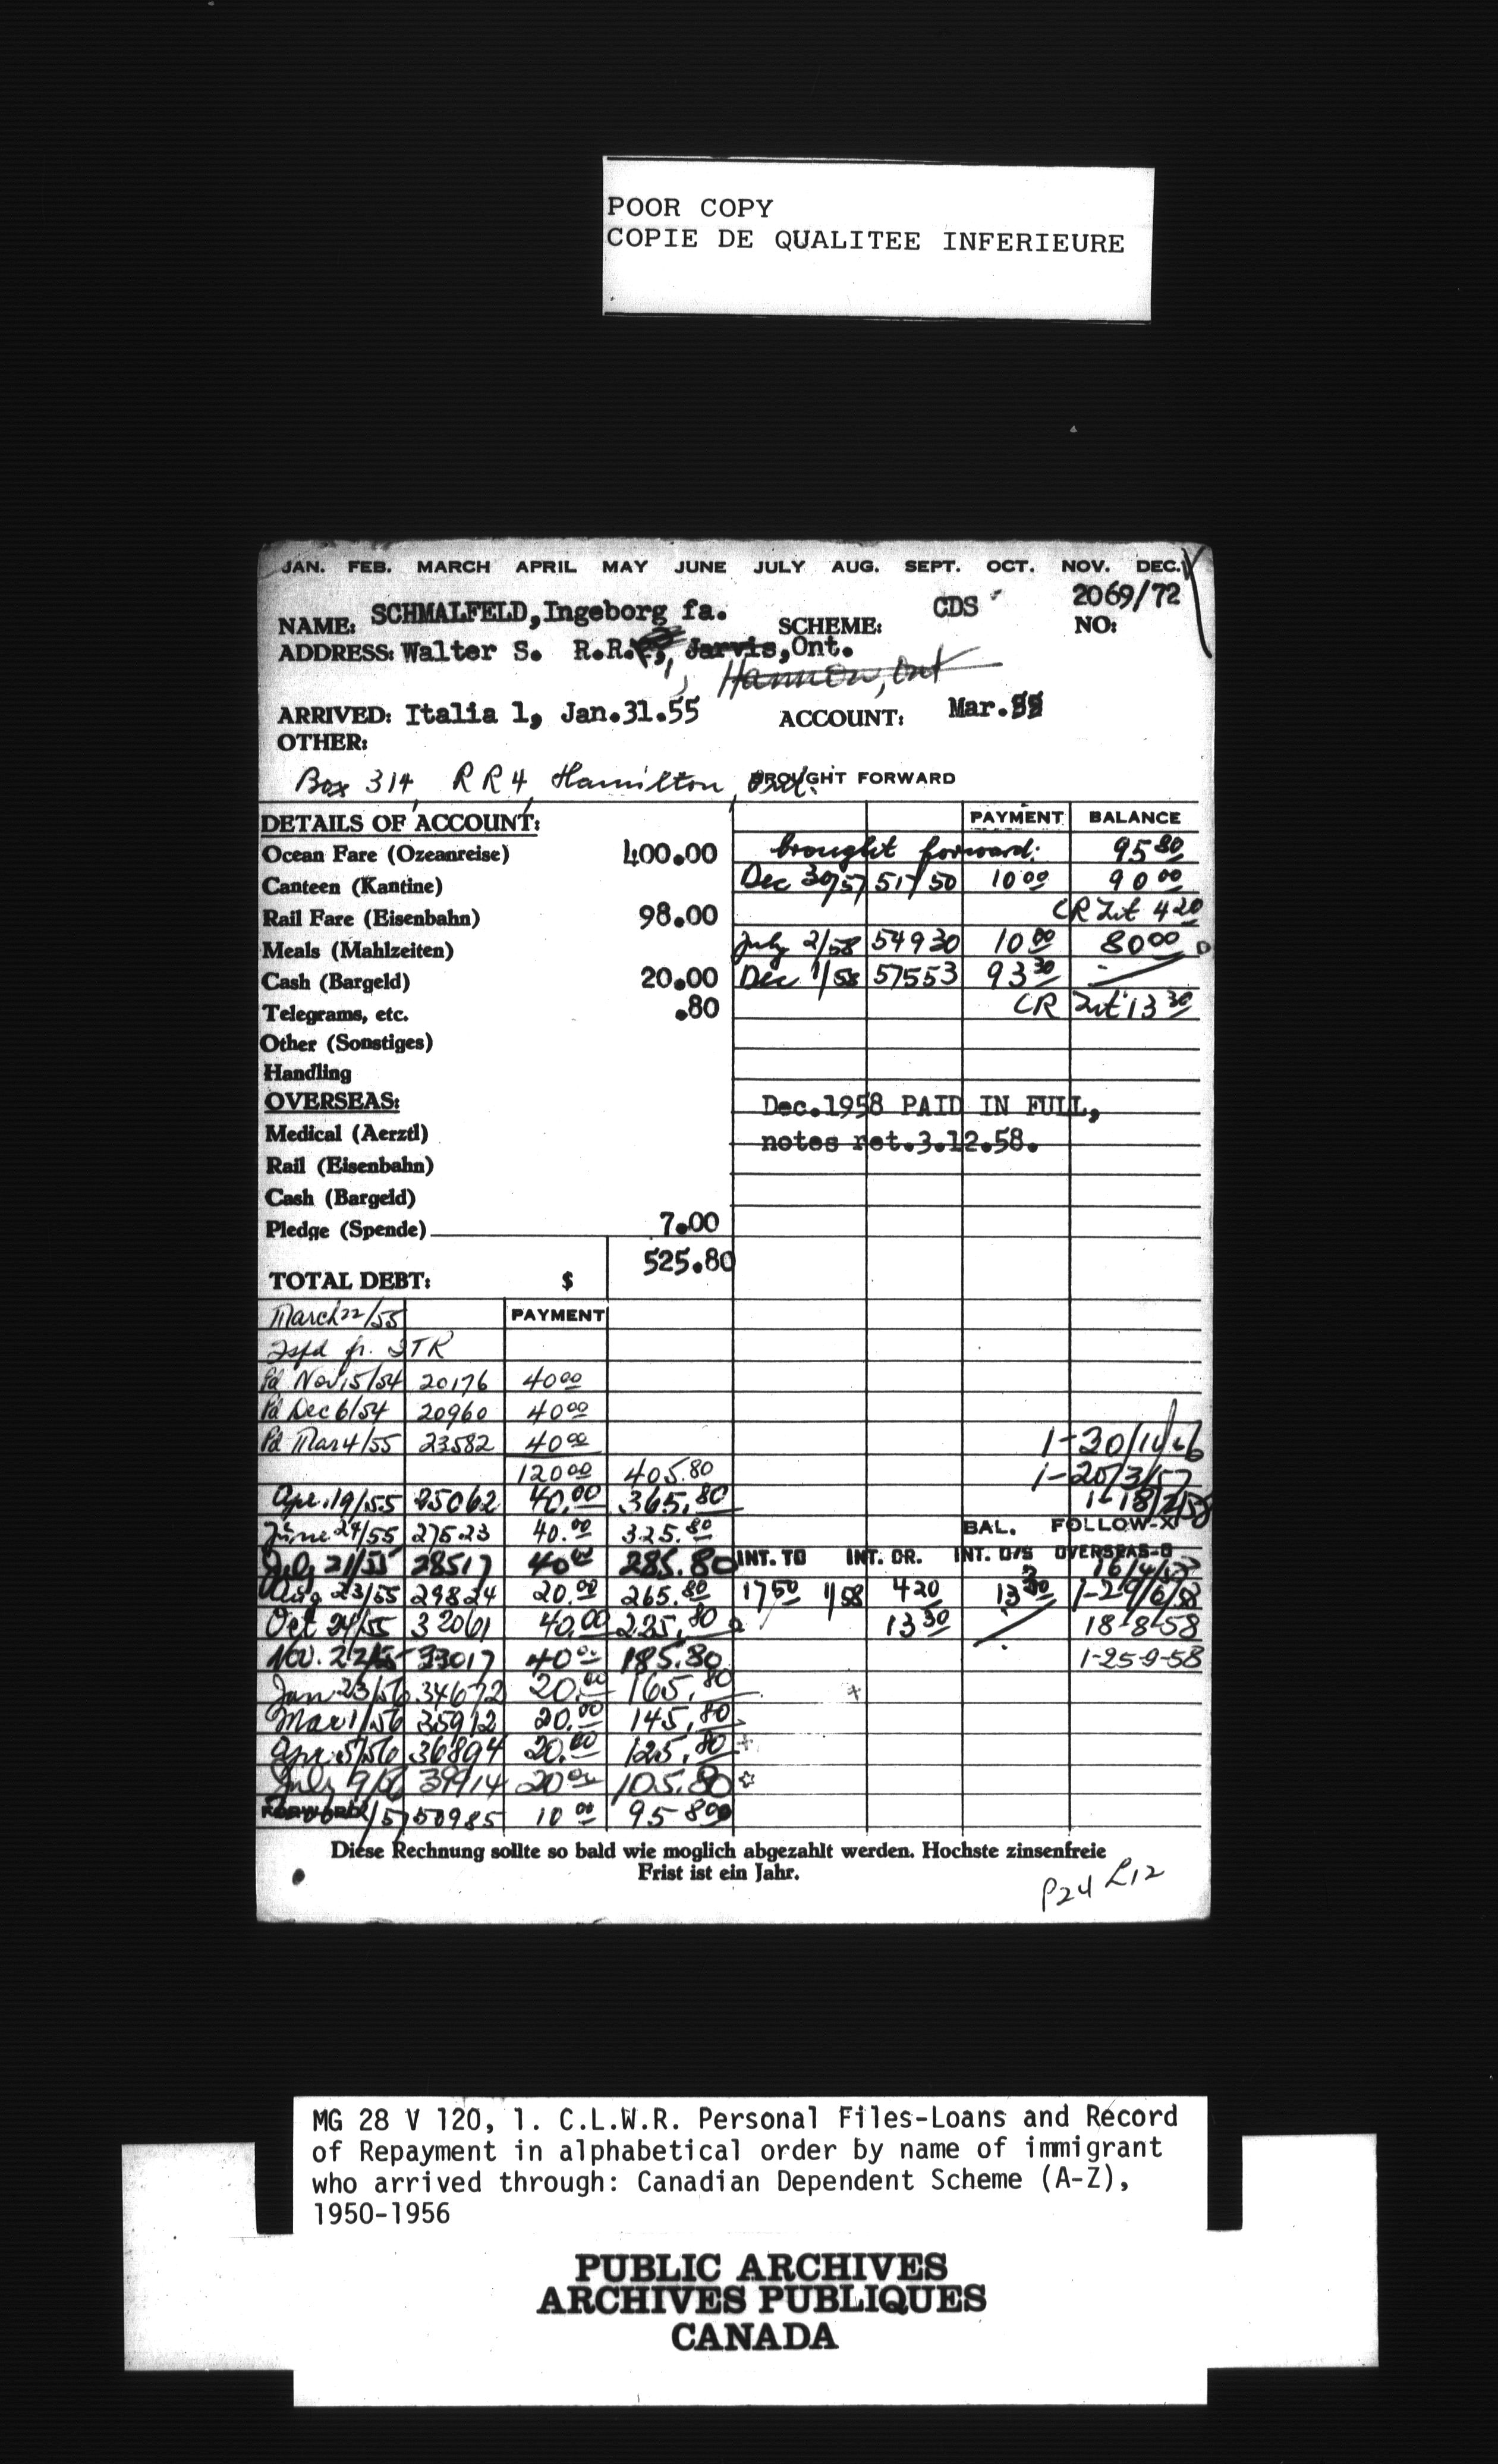 POOR COPY
COPIE DE QUALITEE INFERIEURE
JAN. FEB. MARCH APRIL MAY JUNE JULY AUG. SEPT. OCT. NOV. DEC.
NAME: SCHMALFELD, Ingeborg fa. SCHEME: CDS NO: 2069/72
ADDRESS: Walter S. R.R. 1, Jarvis, Ont.
Hannon, Ont
ARRIVED: Italia 1, Jan.31.55 ACCOUNT: Mar.55
OTHER:
Box 314, RR4, Hamilton, Ont. BROUGHT FORWARD
DETAILS OF ACCOUNT: PAYMENT BALANCE
Ocean Fare (Ozeanreise) 400.00 brought forward: 95 80
Canteen (Kantine) Dec 30/57 51750 10 00 90 00
Rail Fare (Eisenbahn) 98.00 CR Int 4 20
Meals (Mahlzeiten) July 2/58 54930 10 00 80 00
Cash (Bargeld) 20.00 Dec 1/58 57553 93 30
Telegrams, etc. .80 CR Int 13 30
Other (Sonstiges)
Handling
OVERSEAS: Dec.1958 PAID IN FULL,
Medical (Aerztl) notes ret.3.12.58.
Rail (Eisenbahn)
Cash (Bargeld)
Pledge (Spende) 7.00
TOTAL DEBT: $ 525.80
March 22/55 PAYMENT
Tsfd fr. ITR
Pd Nov 15/54 20176 40 00
Pd Dec 6/54 20960 40 00
Pd Mar 4/55 23582 40 00
120 00 405.80 1-20/3/57
Apr. 19/55 25062 40.00 365.80 1-18/2/58
June 24/55 27523 40.00 325.80 BAL. FOLLOW-X
July 21/55 28517 40 00 285.80 INT. TO INT. CR. INT. O/S OVERSEAS-O
Aug 23/55 29824 20.00 265.80 17 50 1/58 4 20 13 30 1-29/6/58
Oct 24/55 32061 40.00 225.80 13 30 18-8-58
Nov. 22/55 33017 40 00 185.80 1-25-9-58
Jan 23/56 34672 20.00 165.80
Mar 1/56 35912 20.00 145.80
Apr 5/56 36894 20.00 125.80
July 9/56 39914 20 00 105.80
FORWARD /57 50985 10 00 95 80
Diese Rechnung sollte so bald wie moglich abgezahlt werden. Hochste zinsenfreie
Frist ist ein Jahr.
P24 L12
MG 28 V 120, 1. C.L.W.R. Personal Files-Loans and Record
of Repayment in alphabetical order by name of immigrant
who arrived through: Canadian Dependent Scheme (A-Z),
1950-1956
PUBLIC ARCHIVES
ARCHIVES PUBLIQUES
CANADA